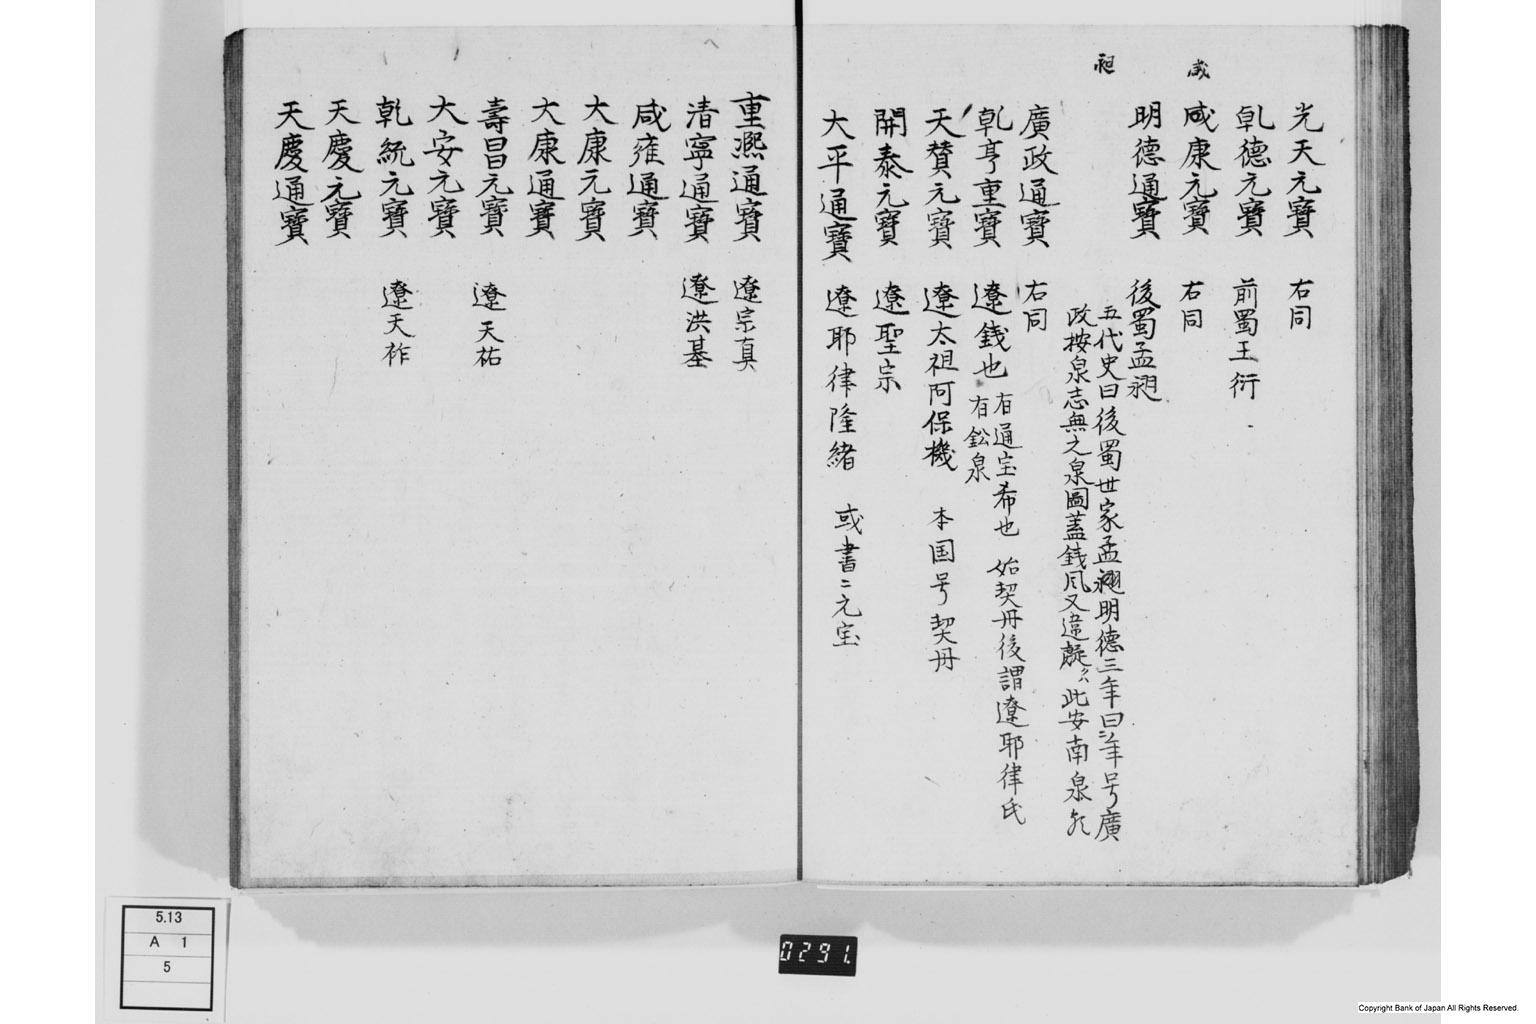 光天元寳　右同
乹德元寳　前蜀王衍
咸
咸康元寳　右同
明德通寳　後蜀孟昶
昶
五代史曰後蜀世家孟昶明德三年曰年号廣
政按泉志無之泉圖蓋錢風又違 此安南泉
廣政通寳　右同
乹亨重寳　遼錢也　有通宝希也　始契丹後謂遼耶律氏
有鈆泉
天賛元寳　遼太祖阿保機　本国号契丹
開泰元寳　遼聖宗
大平通寳　遼耶律隆緒　或書ニ元宝
重熈通寳　遼宗真
清寧通寳　遼洪基
咸雍通寳
大康元寳
大康通寳
壽昌元寳　遼天祐
大安元寳
乾統元寳　遼天祚
天慶元寳
天慶通寳
5.13
A 1
5
0291.
Copyright Bank of Japan All Rights Reserved.